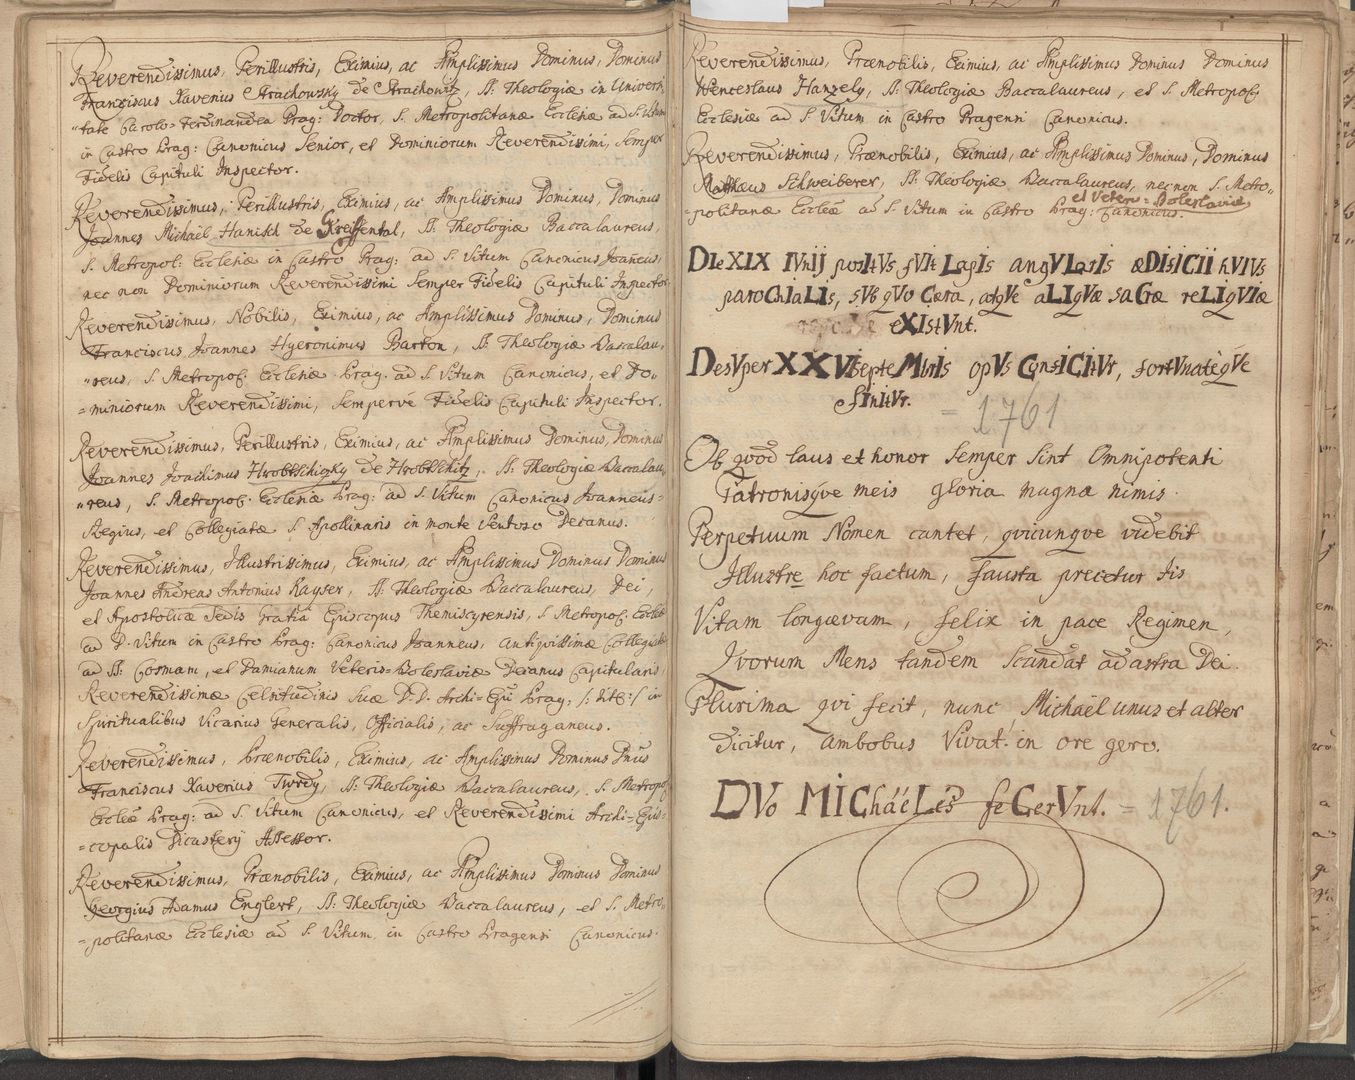 Reverendissimus, Perillustris, Eximius, ac Amplissimus Dominus, Dominus
Franciscus Xaverius Strachowsky de Strachowitz, SS. Theologiæ in Universi-
"tate Carolo-Ferdinandea Prag: Doctor, S. Metropolitanæ Ecclesiæ ad S. Vitum
in Castro Prag: Canonicus Senior, et Dominiorum Reverendissimi, Semper
Fidelis Capituli Inspector.
Reverendissimus, Perillustris, Eximius, ac Amplissimus Dominus, Dominus
Joannes Michael Hanisch de Greiffental, SS. Theologiæ Baccalaureus,
S. Metropol: Ecclesiæ in Castro Prag: ad S. Vitum Canonicus Joaneus,
nec non Dominiorum Reverendissimi Semper Fidelis Capituli Inspector.
Reverendissimus, Nobilis, Eximius, ac Amplissimus Dominus, Dominus
Franciscus Joannes Hyeronimus Barton, SS. Theologiæ Baccalau-
"reus, S. Metropol. Ecclesiæ Prag. ad S. Vitum Canonicus, et Do"
=miniorum Reverendissimi, Sempervé Fidelis Capituli Inspector.
Reverendissimus, Perillustris, Eximius, ac Amplissimus Dominus, Dominus
Joannes Joachimus Hrobtschizky de Hrobtschitz, SS. Theologiæ Baccalau,
"reus, S. Metropol. Ecclesiæ Prag: ad S. Vitum Canonicus Joanneus=
Regius, et Collegiatæ S. Apollinaris in monte Ventoso Decanus.
Reverendissimus, Illustrissimus, Eximius, ac Amplissimus Dominus Dominus
Joannes Andreas Antonius Kayser, SS. Theologiæ Baccalaureus, Dei,
et Apostolicæ Sedis Gratiâ Episcopus Themiscyrensis, S. Metropol. Eccleæ
ad D. Vitum in Castro Prag: Canonicus Joanneus, antiquissimæ Collegiatæ
ad SS. Cosmam, et Damianum Veteris-Boleslaviæ Decanus Capitularis,
Reverendissimæ Celsitudinis Suæ D.D. Archi-Epi Prag, /: tit: / in
Spiritualibus Vicarius Generalis, Officialis, ac Suffraganeus.
Reverendissimus, Prænobilis, Eximius, ac Amplissimus Dominus Dnus
Franciscus Xaverius Twrdy, SS. Theologiæ Baccalaureus, S. Metropol
Eccleæ Prag: ad S. Vitum Canonicus, et Reverendissimi Archi-Epis-
=copalis Dicasterij Assessor.
Reverendissimus, Prænobilis, Eximius, ac Amplissimus Dominus Dominus
Georgius Adamus Englert, SS. Theologiæ Baccalaureus, et S. Metro-
=politanæ Ecclesiæ ad S. Vitum in Castro Pragensi Canonicus.
Reverendissimus, Prænobilis, Eximius, ac Amplissimus Dominus Dominus
Wenceslaus Hanzely, SS. Theologiæ Baccalaureus, et S. Metropol.
Ecclesiæ ad S. Vitum in Castro Pragensi Canonicus.
Reverendissimus, Prænobilis, Eximius, ac Amplissimus Dominus, Dominus
Matthæus Schweiberer, SS. Theologiæ Baccalaureus, necnon S. Metro-
et Vetero-Boleslaviæ
=politanæ Eccleæ ad S. Vitum in Castro Prag: Canonicus.
DIe XIX IVnIJ posItVs fVIt LapIs angVLarIs æDIfICII hVIVs
paroChIaLIs, sVb qVo Cæra, atqVe aLIqVæ saCræ reLIqVIæ
eXIstVnt.
DesVper XXVI septeMbrIs opVs ConfICItVr, fortVnatèqVe
fInItVr.
= 1761
Ob qvod laus et honor Semper Sint Omnipotenti
Patronisqve meis gloria magna nimis.
Perpetuum Nomen cantet, qvicunqve videbit
Illustre hoc factum, fausta precetur Iis
Vitam longævam, felix in pace Regimen,
Qvorum Mens tandem Scandat ad astra Dei.
Plurima qvi fecit, nunc, Michaël unus et alter
dicitur, ambobus Vivat in ore gero.
DVo MIChaéLes feCerVnt. = 1761.